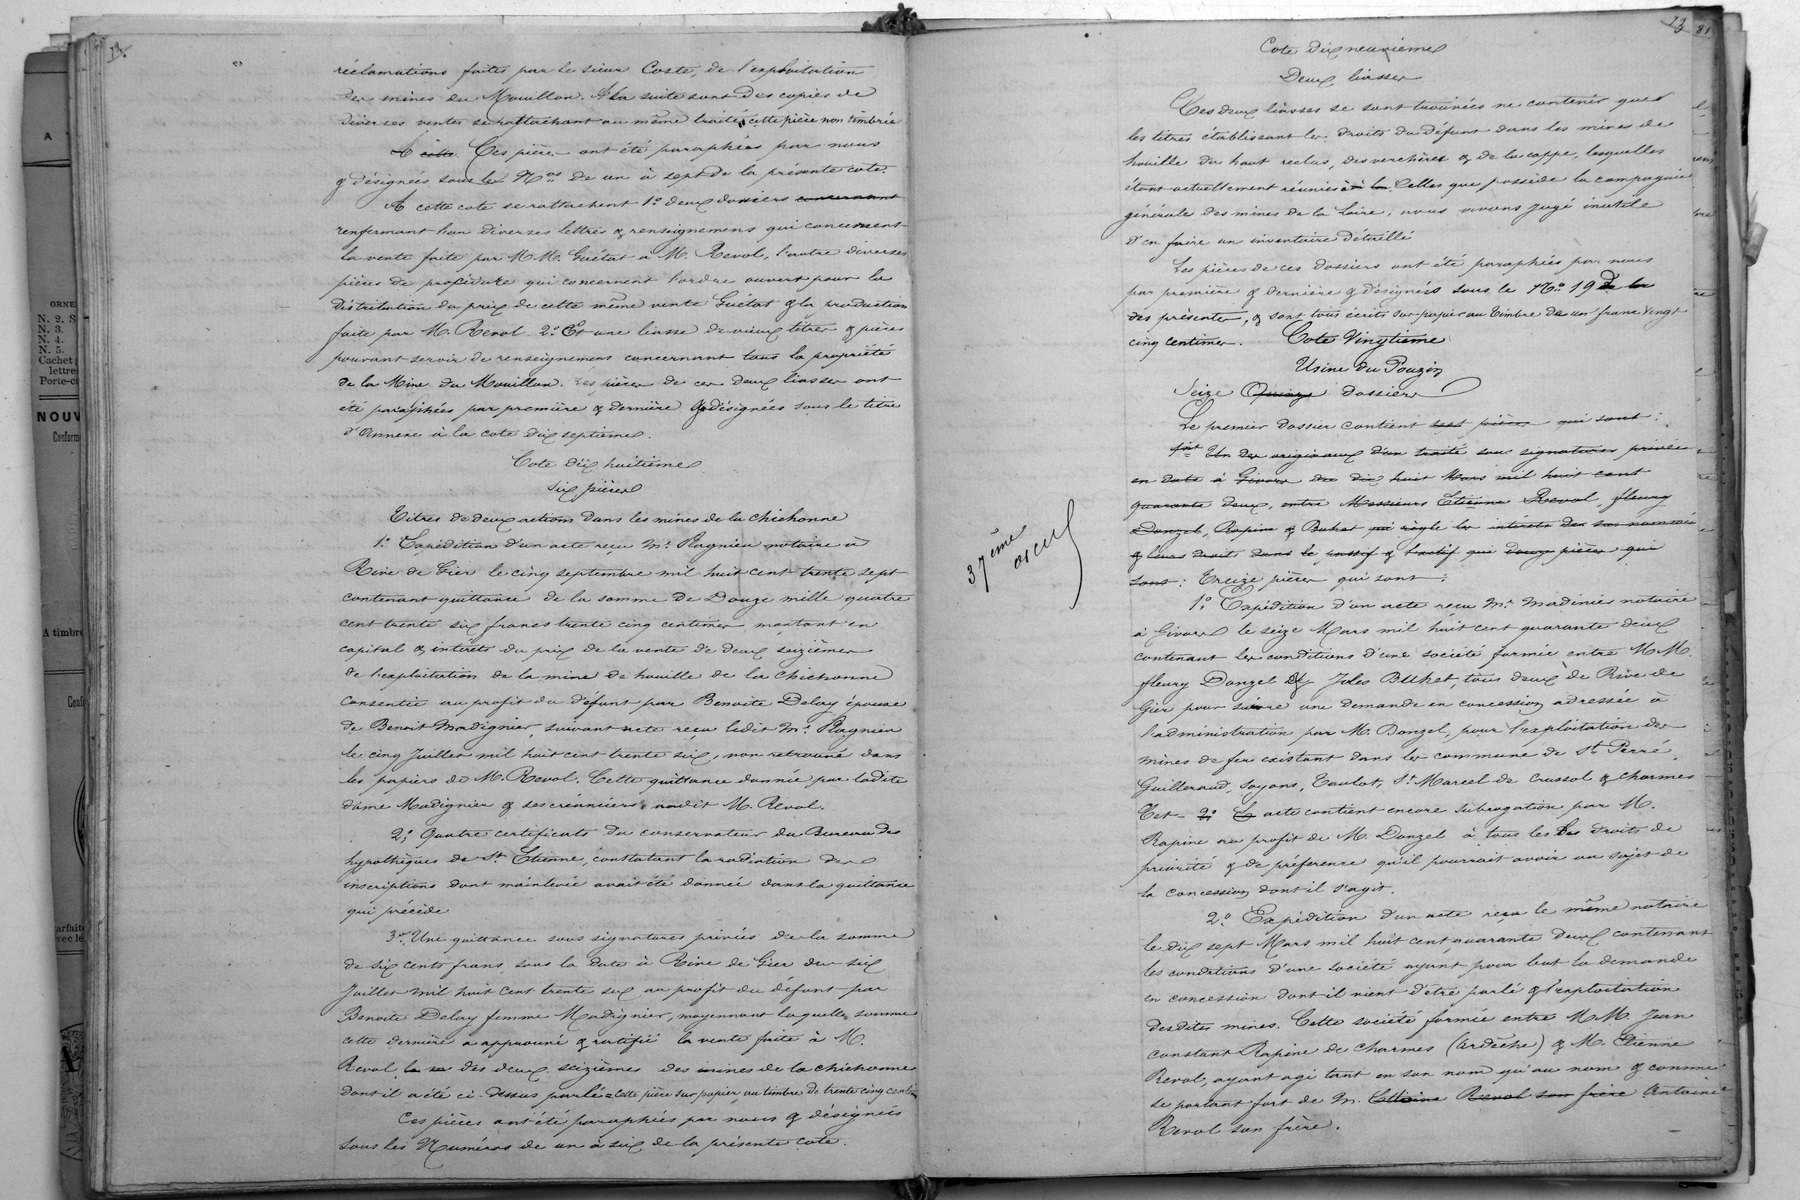 réclamations faites par le sieur Coste, de l'exploitation
des mines du Mouillon. A la suite sont des copies de
diverses ventes se rattachant au même traité, cette pièce non timbrée
Ces pièces ont été paraphées par nous
& désignées sous les Nos de un à sept de la présente cote.
A cette cote se rattachent 1o deux dossiers concernant
renfermant l'un diverses lettres & renseignemens qui concernent
la vente faite par M.M. Guétat à M. Revol, l'autre diverses
pièces de procédure qui concernent l'ordre ouvert pour la
distribution du prix de cette même vente Guétat & la production
faite par M. Revol. 2o Et une liasse de vieux titres & pièces
pouvant servir de renseignemens concernant tous la propriété
de la Mine du Mouillon. Les pièces de ces deux liasses ont
été paraphées par première & dernière & désignées sous le titre
d'Annexe à la cote dix septième.
Cote dix huitième
Six pièces
Titres de deux actions dans les mines de la Chichonne
1o Expédition d'un acte reçu Me Ragnieu notaire à
Rive de Gier le cinq septembre mil huit cent trente sept
contenant quittance de la somme de Douze mille quatre
cent trente six francs trente cinq centimes montant en
capital & intérêts du prix de la vente de deux seizièmes
de l'exploitation de la mine de houille de la Chichonne
consentie au profit du défunt par Benoite Delay épouse
de Benoit Madignier, suivant acte reçu ledit Me Ragnieu
le cinq Juillet mil huit cent trente six, non retrouvé dans
les papiers de M. Revol. Cette quittance donnée par ladite
dame Madignier & ses créanciers audit M. Revol.
2o Quatre certificats du conservateur du Bureau des
hypothèques de St Etienne, constatant la radiation des
inscriptions dont mainlevée avait été donnée dans la quittance
qui précède
3o Une quittance sous signatures privées de la somme
de six cents francs, sous la date à Rive de Gier du six
Juillet mil huit cent trente six au profit du défunt par
Benoite Delay femme Madignier, moyennant laquelle somme
cette dernière a approuvé & ratifié la vente faite à M.
Revol des deux seizièmes des mines de la Chichonne
dont il a été ci-dessus parlé = Cette pièce sur papier au timbre de trente cinq centimes
Ces pièces ont été paraphées par nous & désignées
sous les Numéros de un à six de la présente cote.
73 81
Cote dix neuvième
Deux liasses
Ces deux liasses se sont trouvées ne contenir que
les titres établissant les droits du défunt dans les mines de
houille du haut reclus, des verchères & de la cappe, lesquelles
étant actuellement réunies à celles que possède la compagnie
générale des mines de la Loire, nous avons jugé inutile
d'en faire un inventaire détaillé
Les pièces de ces dossiers ont été paraphées par nous
par première & dernière & désignées sous le No 19 de la
des présentes, & sont tous écrits sur papier au timbre de un franc vingt
cinq centimes. Cote Vingtième
Usine du Pouzin
Seize Quinze dossiers
Le premier dossier contient sept pièces qui sont :
1ent Un des originaux d'un traité sous signatures privées
en date à Givors du dix huit Mars mil huit cent
quarante deux, entre Messieurs Etienne Revol, fleury
Donzel, Rapine & Buhet qui règle les intérêts des sus nommés
& leurs droits dans le passif & l'actif qui douze pièces qui
sont : Treize pièces qui sont :
37ème
1o Expédition d'un acte reçu Me Madinier notaire
à Givors le seize Mars mil huit cent quarante deux
contenant les conditions d'une société formée entre M.M.
fleury Donzel & Jules Buhet, tous deux de Rive de
Gier pour suivre une demande en concession adressée à
l'administration par M. Donzel, pour l'exploitation des
mines de fer existant dans les communes de St Perré,
Guilleraud, Soyons, Toulot, St Marcel de Crussol & Charmes
Cet 2o Et acte contient encore subrogation par M.
Rapine au profit de M. Donzel à tous les droits de
priorité & de préférence qu'il pourrait avoir au sujet de
la concession dont il s'agit.
2o Expédition d'un acte reçu le même notaire
le dix sept Mars mil huit cent quarante deux contenant
les conditions d'une société ayant pour but la demande
en concession dont il vient d'être parlé & l'exploitation
desdites mines. Cette société formée entre M.M. Jean
Constant Rapine de Charmes (Ardèche) & M. Etienne
Revol, ayant agi tant en son nom qu'au nom & comme
se portant fort de M. Etienne Revol son frère Antoine
Revol son frère.